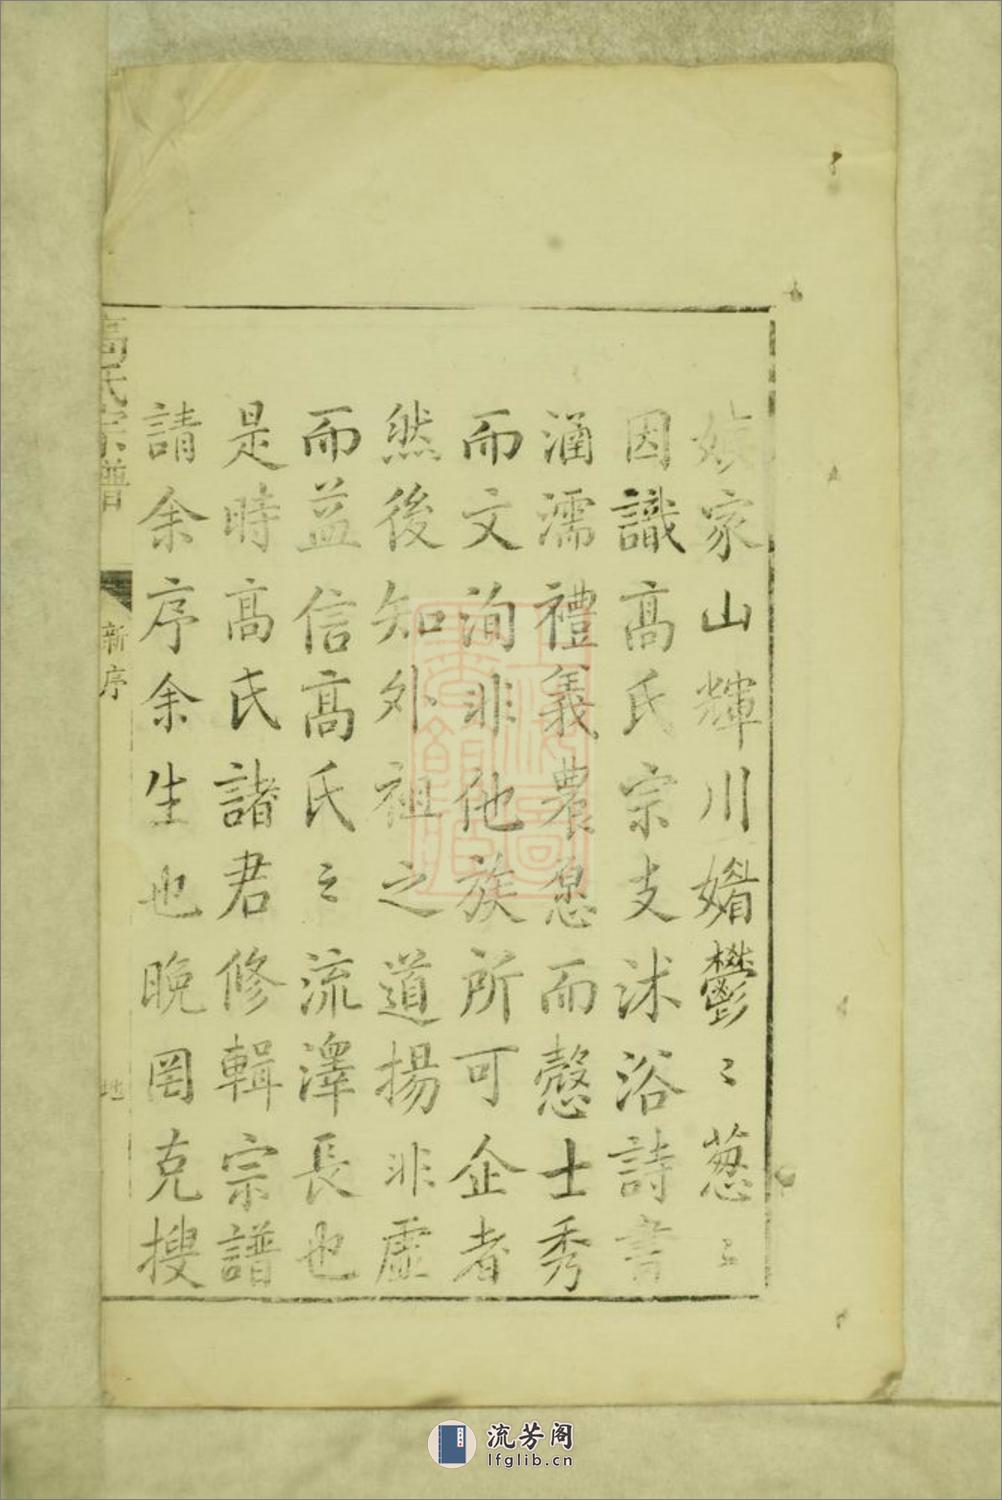 家山輝川媚鬱〻葱〻
因識髙氏宗支沐浴詩書
涵濡禮義農愿而慤士秀
而文洵非他族所可企者
然後知外祖之道揚非虛
而益信髙氏之流澤長也
是時髙氏諸君修輯宗譜
請余序余生也晚罔克搜
高氏宗譜
新序
地
流芳阁
lfglib.cn